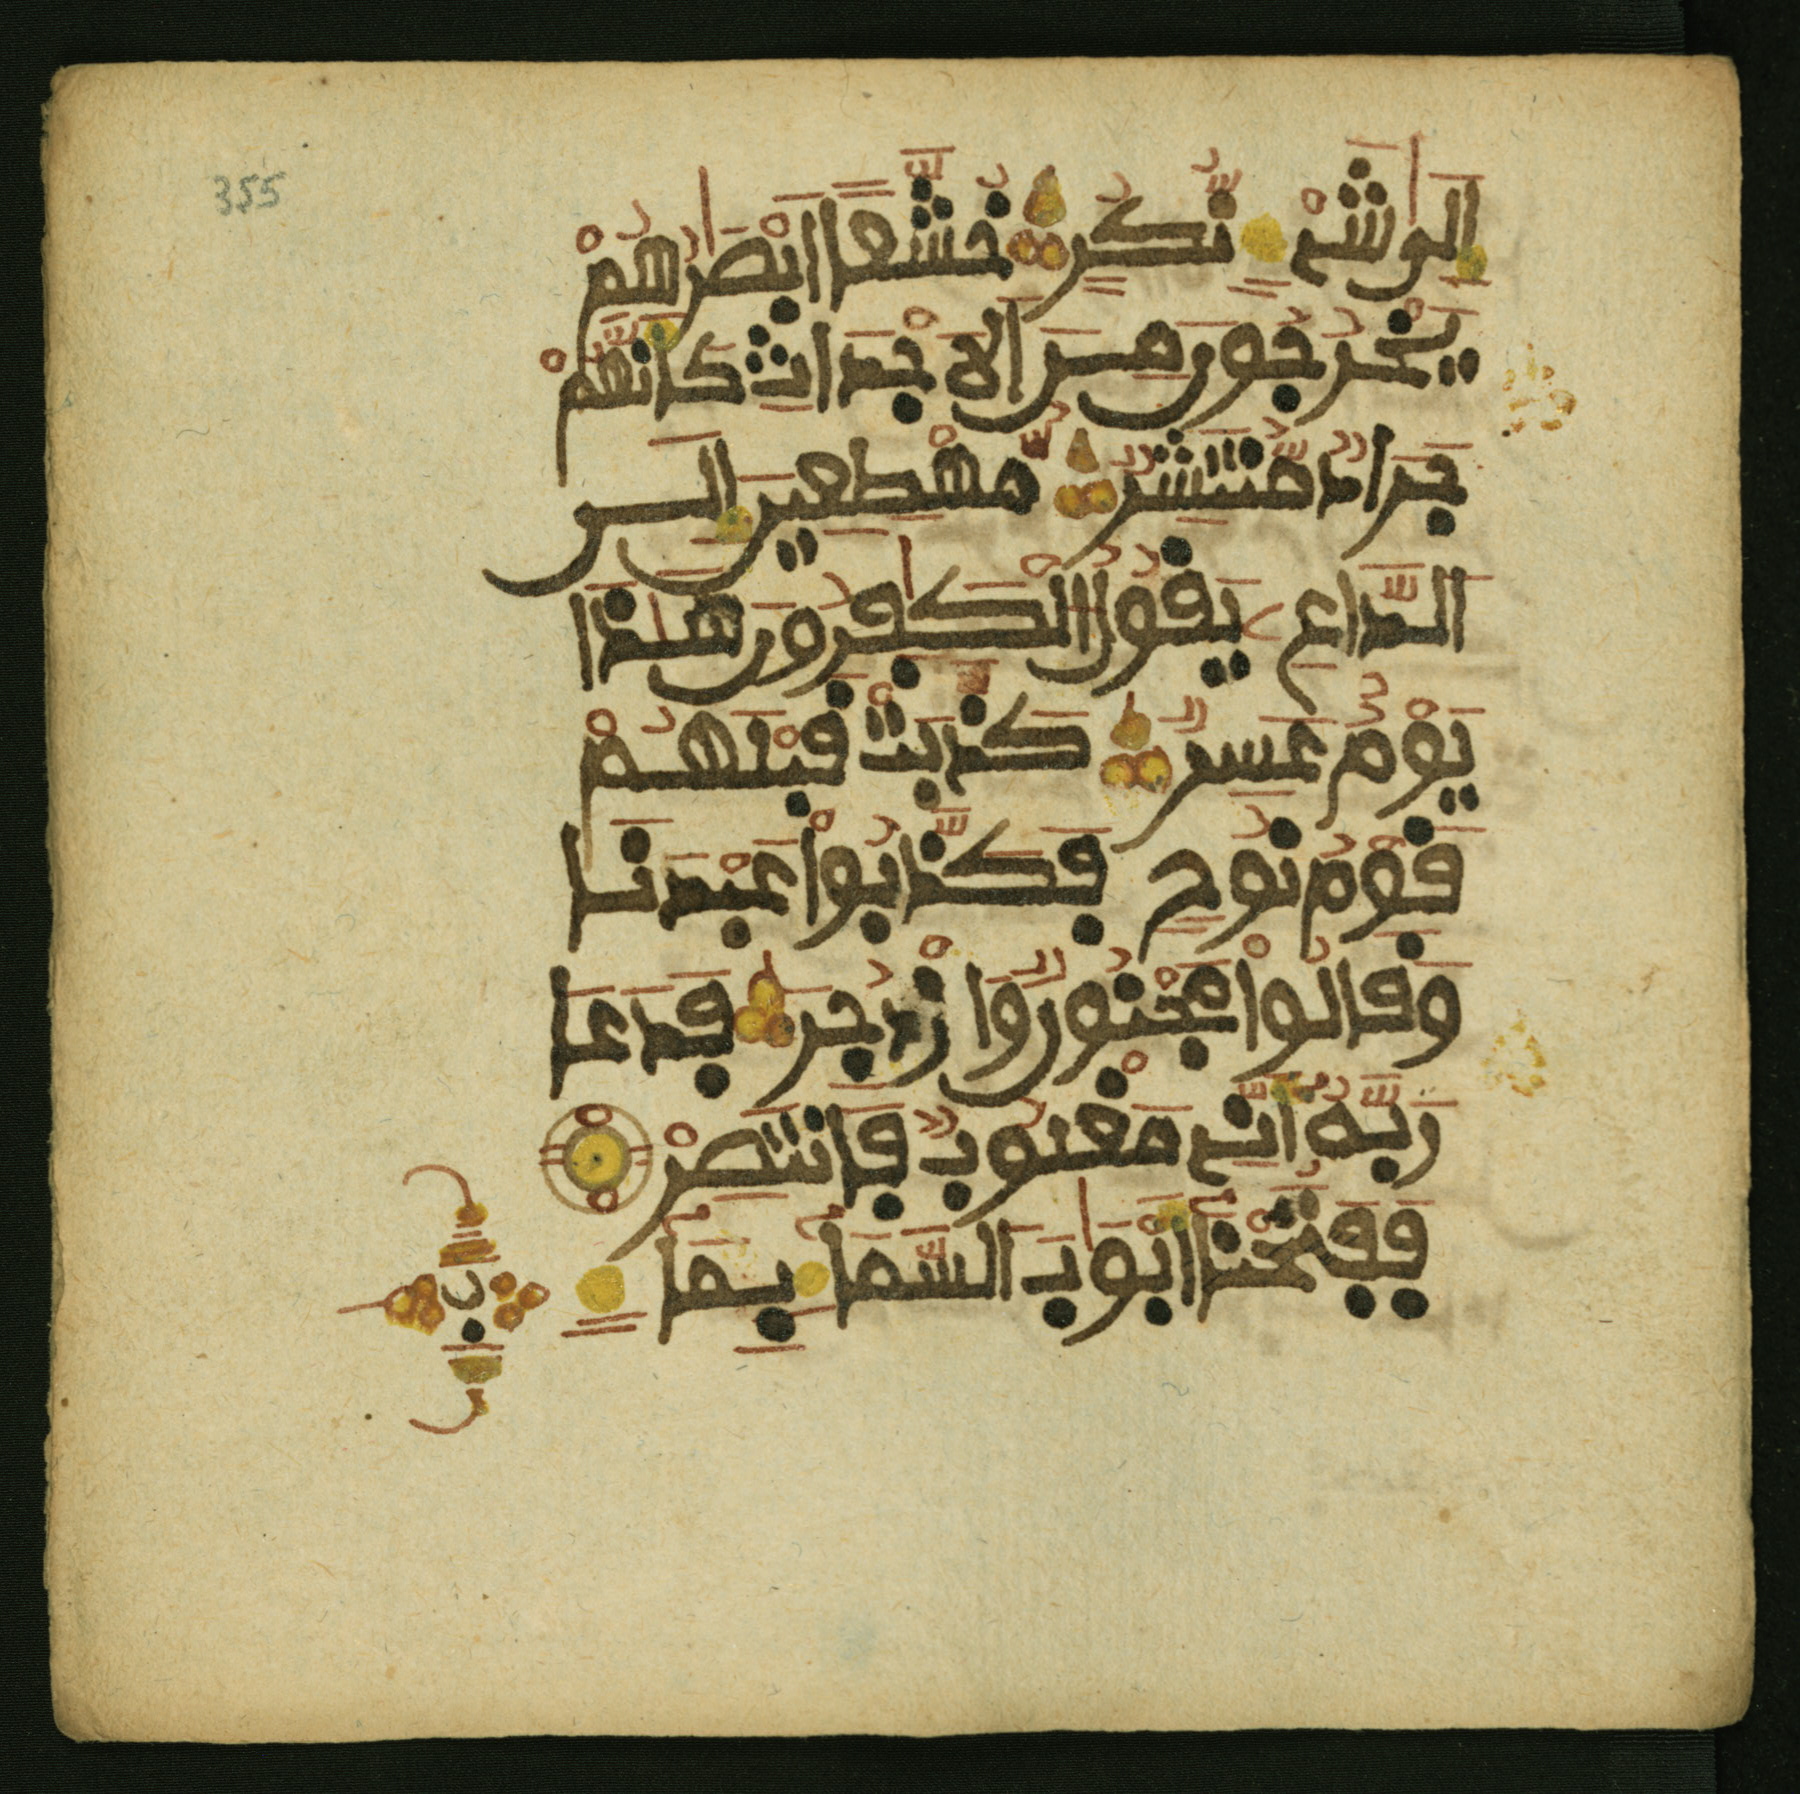 355
إِلَىٰ شَےْءٍ نُّكُرٍ خُشَّعًا اَبْصَٰرُهُمْ
يَخْرُجُونَ مِنَ اَلَاجْدَاثِ كَأَنَّهُمْ
جَرَادٌ مُّنتَشِرٌ مُّهْطِعِينَ إِلَى
اَلدَّاعِ يَقُولُ اُلْكَٰفِرُونَ هَٰذَا
يَوْمٌ عَسِرٌ كَذَّبَتْ قَبْلَهُمْ
قَوْمُ نُوحٍ فَكَذَّبُواْ عَبْدَنَا
وَقَالُواْ مَجْنُونٌ وَازْدُجِرَ فَدَعَا
رَبَّهُۥٓ أَنِّے مَغْلُوبٌ فَانتَصِرْ
فَفَتَحْنَآ أَبْوَٰبَ اَلسَّمَآءِ بِمَآءٍ